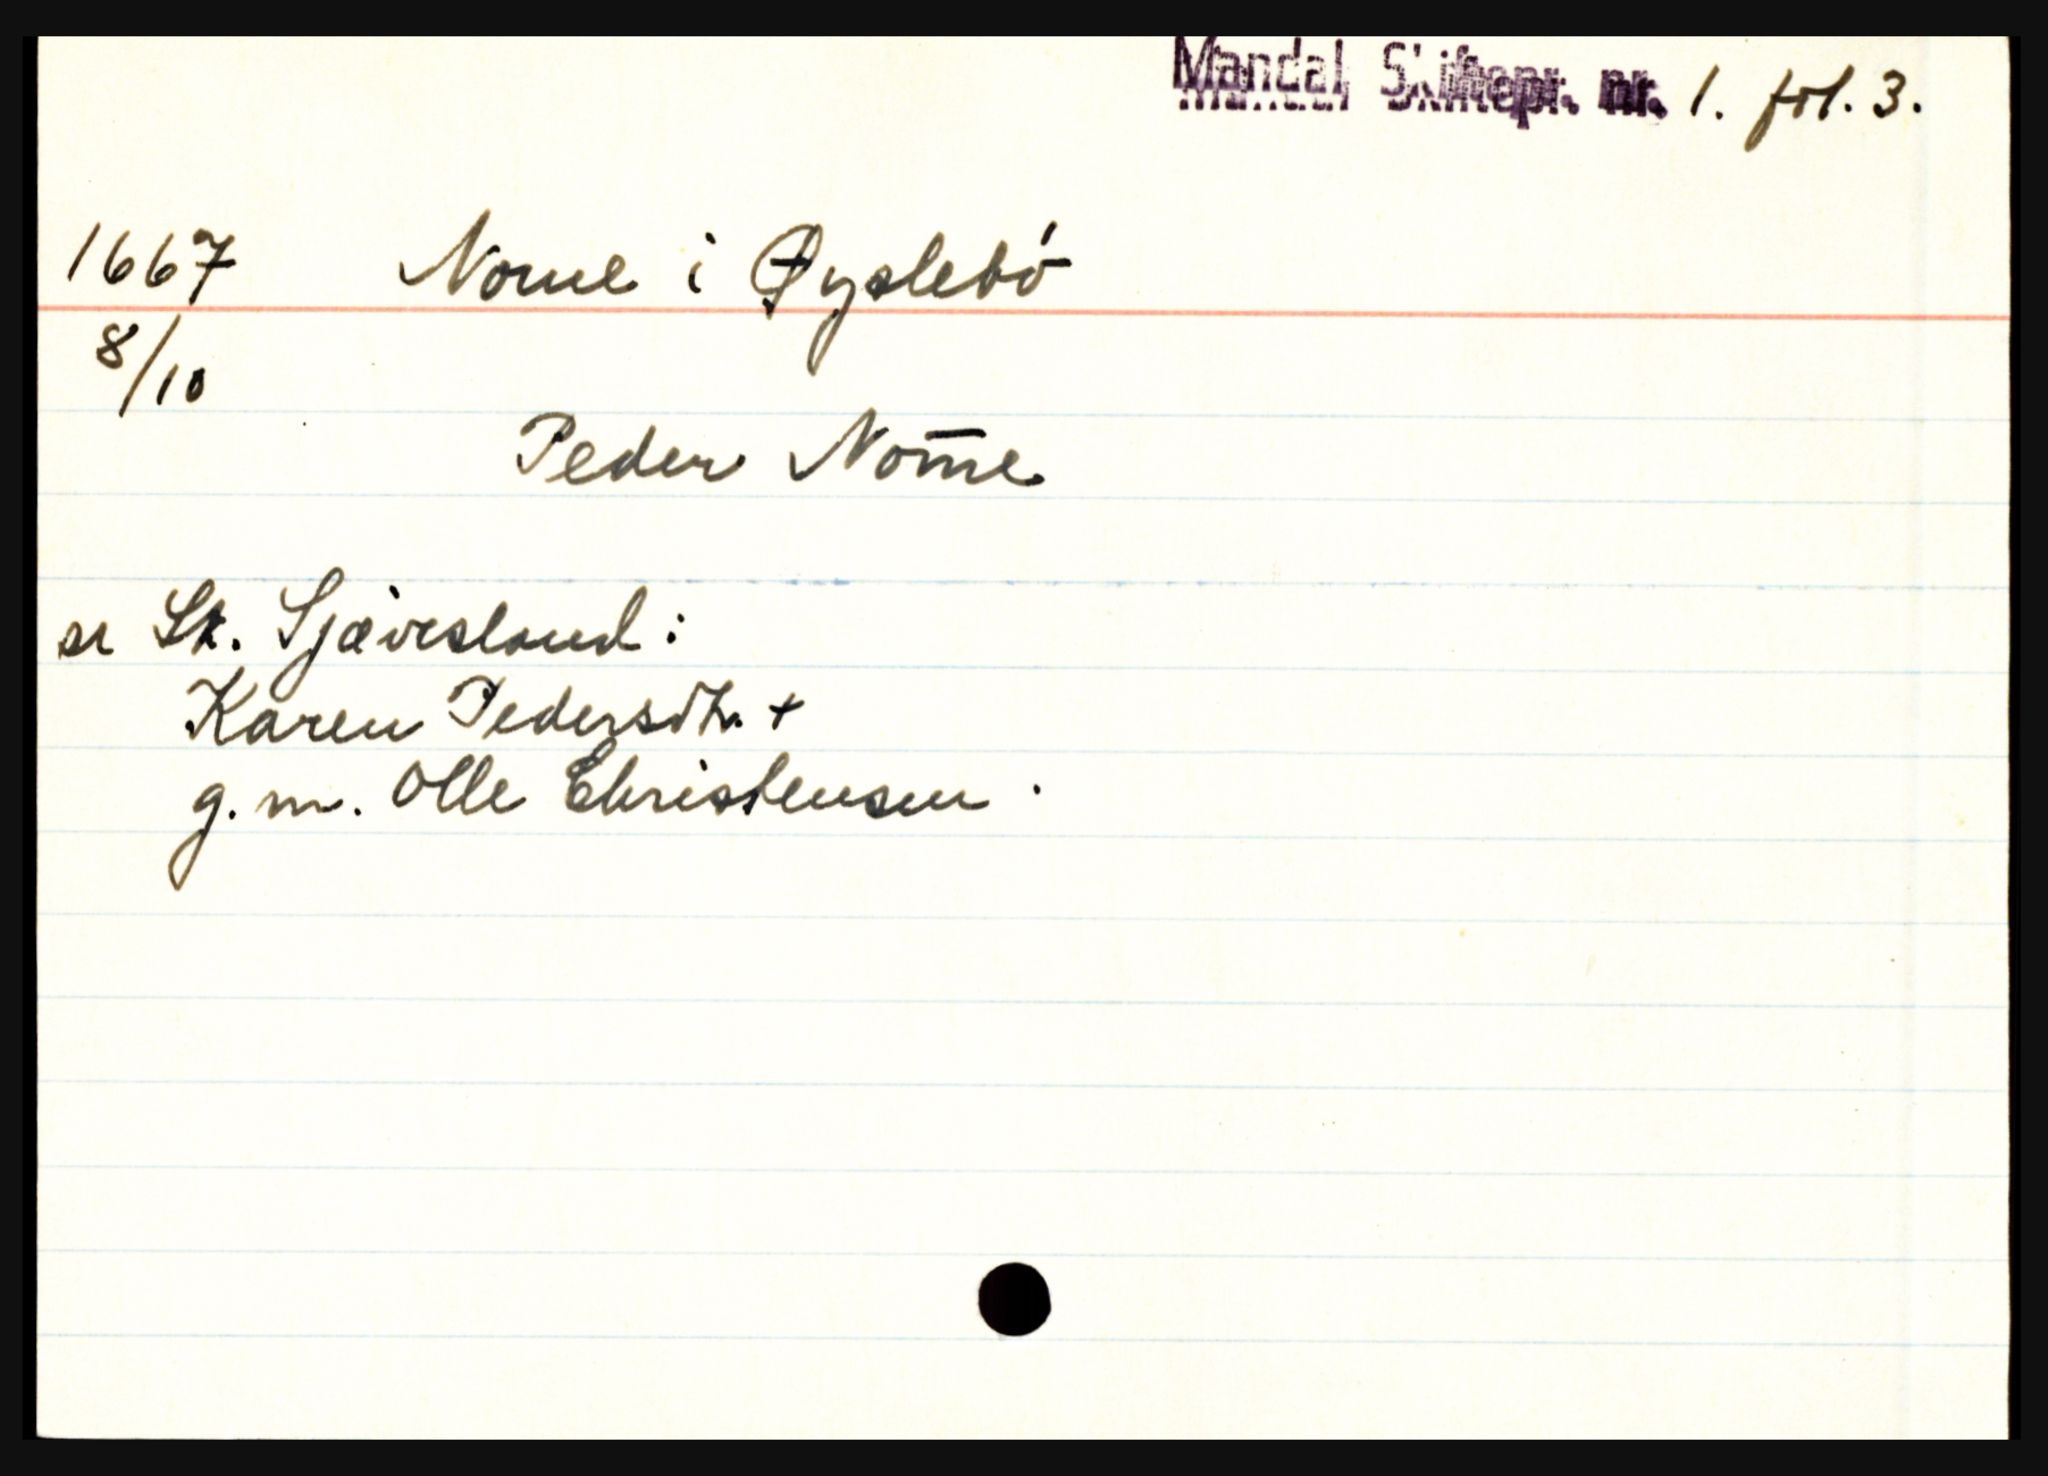 Mandal Skiftepr. nr. 1. fol. 3.
1667 Nome i Øyslebö
8/10
Peder Nom̄e
se Sk. Sjævesland:
Karen Pedersdtr. +
g. m. Olle Christensen.